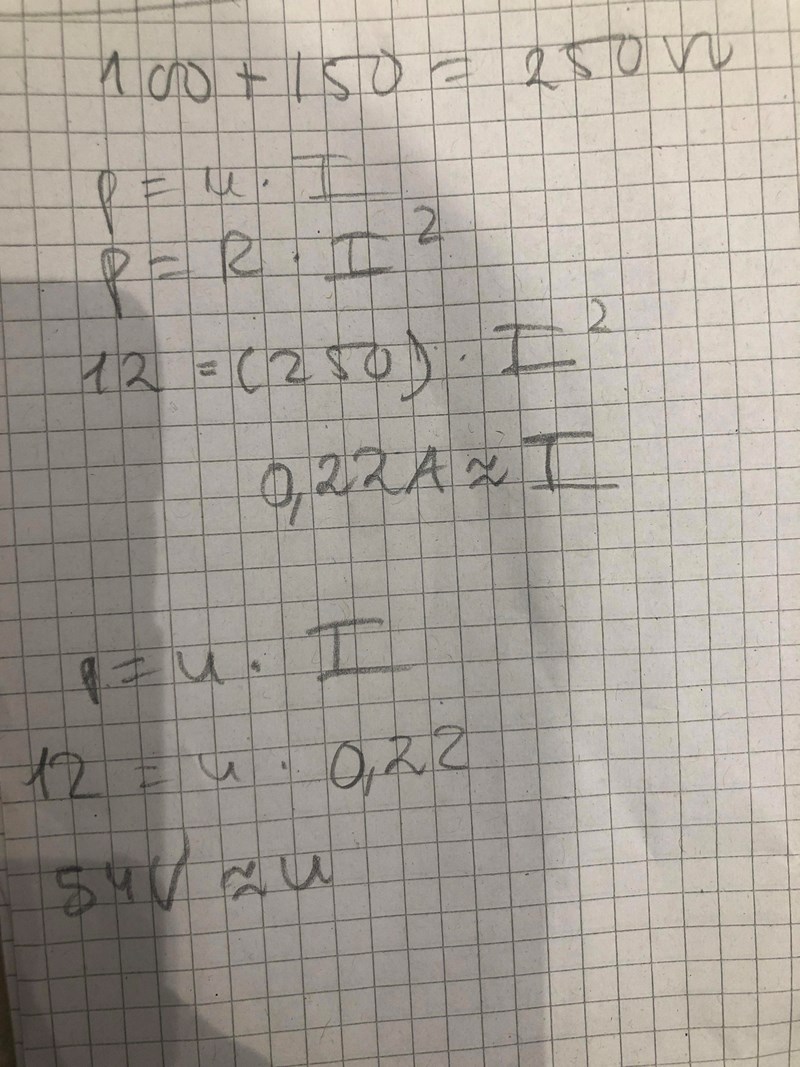 100 + 150 = 250 Ω
P = U · I
P = R · I²
12 = (250) · I²
0,22A ≈ I
P = U · I
12 = U · 0,22
54V ≈ U